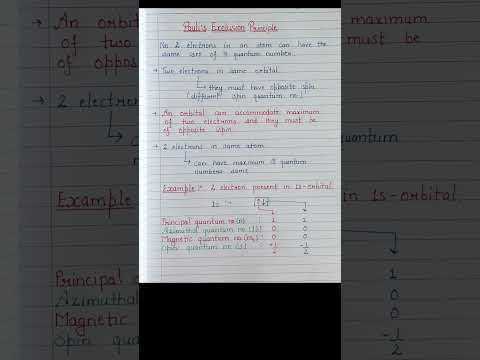 Pauli's Exclusion Principle
No 2 electrons in an atom can have the
same set of 4 quantum number.
→ Two electrons in same orbital
↳ they must have opposite spin
(different spin quantum no.)
→ An orbital can accommodate maximum
of two electrons and they must be
of opposite spin.
→ 2 electrons in same atom
↳ can have maximum 3 quantum
numbers same
Example:- 2 electron present in 1s-orbital
1s :- ↑↓
Principal quantum no.(n) : 1 1
Azimuthal quantum no.(l) : 0 0
Magnetic quantum no.(m) : 0 0
Spin quantum no.(s) : +1/2 -1/2
→ An o
of two
of oppos
→ 2 electron
↳ c
n
Example
Principal q
Azimuthal
Magnetic
Spin qua
maximum
must be
quantum
1s-orbital
1
0
0
-1/2